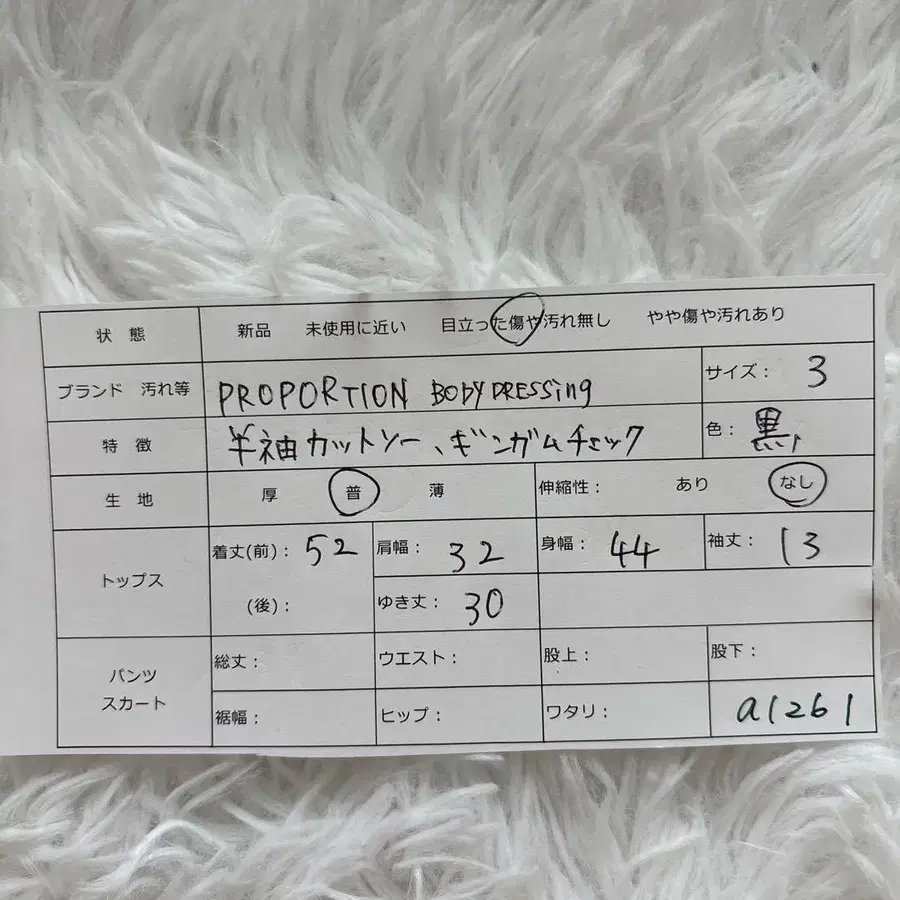 状 態 新品 未使用に近い 目立った傷や汚れ無し やや傷や汚れあり
ブランド 汚れ等 PROPORTION BODY DRESSING サイズ： 3
特 徴 半袖カットソー、ギンガムチェック 色： 黒
生 地 厚 普 薄 伸縮性： あり なし
トップス 着丈(前)： 52 肩幅： 32 身幅： 44 袖丈： 13
(後)： ゆき丈： 30
パンツ スカート 総丈： ウエスト： 股上： 股下：
裾幅： ヒップ： ワタリ： a1261